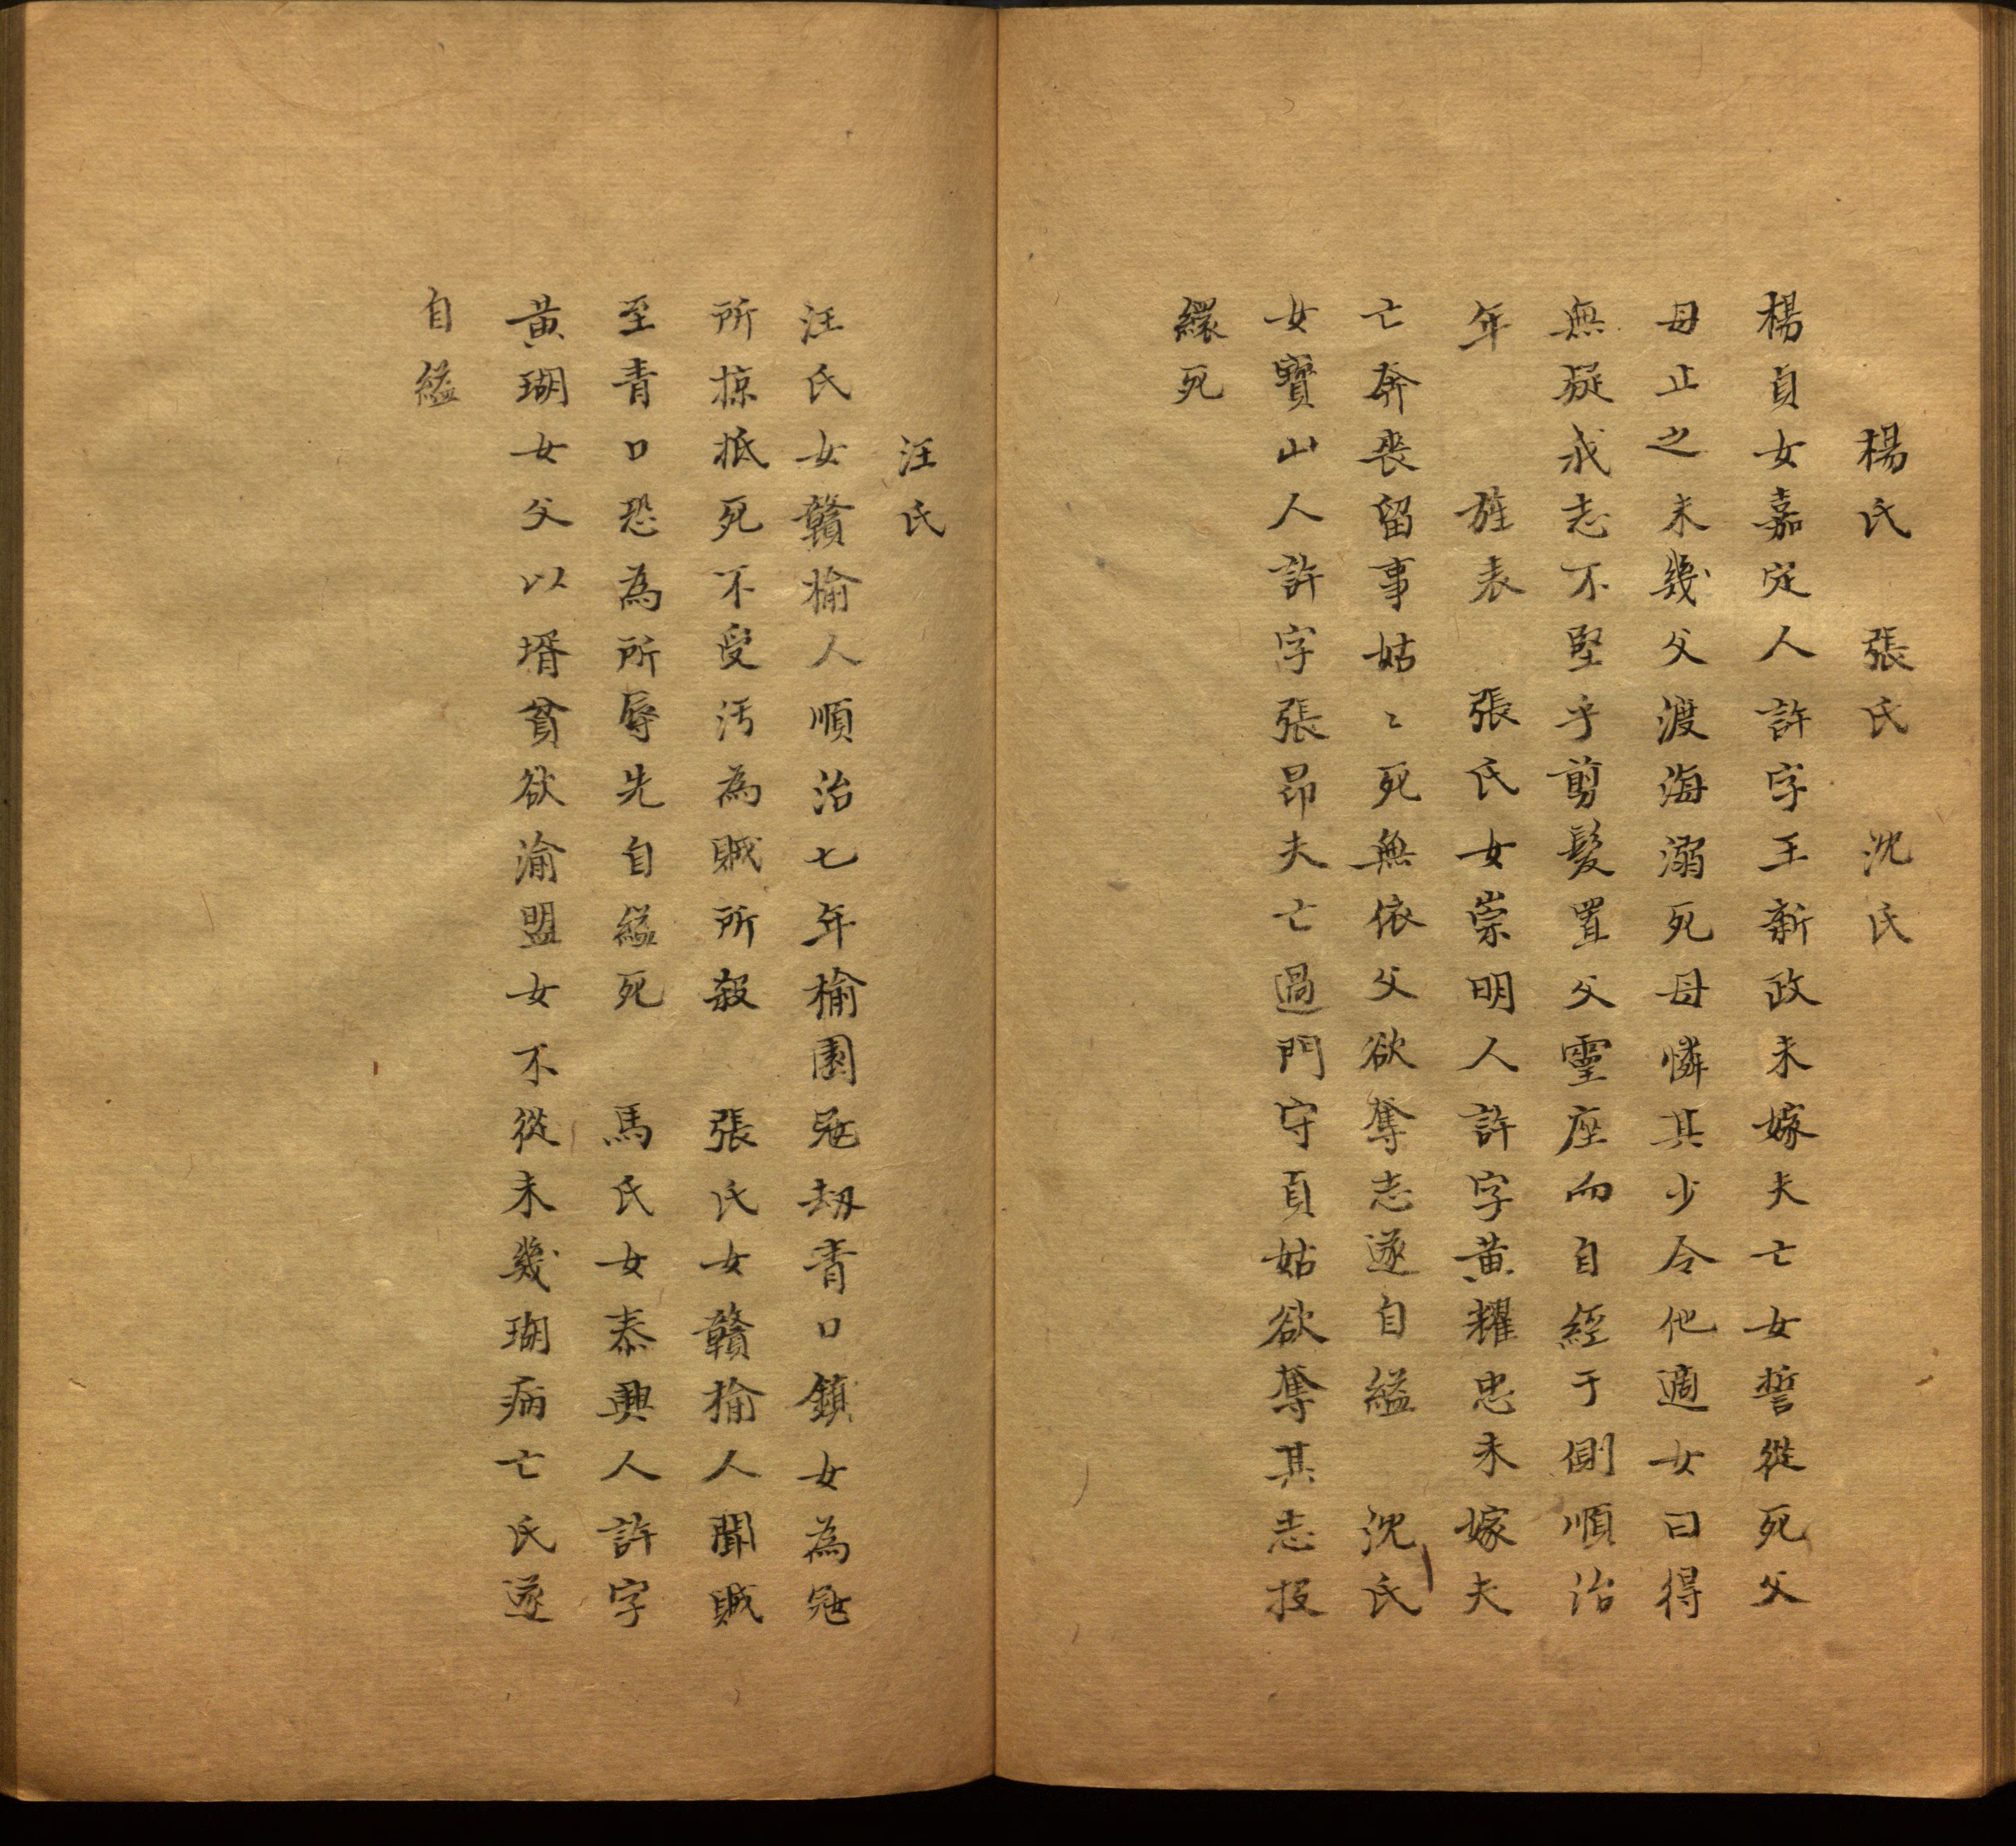 楊氏 張氏 沈氏
楊貞女嘉定人許字王新政未嫁夫亡女誓從死父
母止之未幾父渡海溺死母憐其少令他適女曰得
無疑我志不堅乎剪髮置父靈座而自經于側順治
年 旌表 張氏女崇明人許字黄耀忠未嫁夫
亡奔喪留事姑〻死無依父欲奪志遂自縊 沈氏
女寶山人許字張昂夫亡過門守貞姑欲奪其志投
繯死
汪氏
汪氏女贛榆人順治七年榆園冦刼青口鎮女為冦
所掠抵死不受汚為賊所殺 張氏女贛榆人聞賊
至青口恐為所辱先自縊死 馬氏女泰興人許字
黄瑚女父以壻貧欲渝盟女不從未幾瑚病亡氏遂
自縊